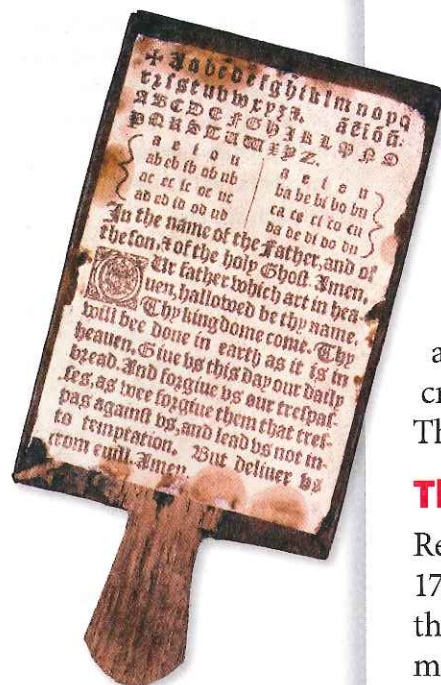 ✠ A a b c d e f g h i k l m n o p q
r ꝛ ſ s t u v w x y z ⁊. ã ẽ ĩ õ ũ.
A B C D E F G H I K L M N O
P Q R S T U W X Y Z.
a e i o u
ab eb ib ob ub
ac ec ic oc uc
ad ed id od ud
a e i o u
ba be bi bo bu
ca ce ci co cu
da de di do du
In the name of the Father, and of
the ſon, ⁊ of the holy Ghoſt. Amen.
OUr father which art in hea-
uen, hallowed be thy name.
Thy kingdome come. Thy
will bee done in earth as it is in
heauen. Giue vs this day our daily
bread. And forgiue vs our treſpaſ-
ſes, as wee forgiue them that treſ-
pas againſt vs, and lead vs not in-
to temptation. But deliuer vs
from euill. Amen.
a
cr
Th
Th
Re
17
th
m